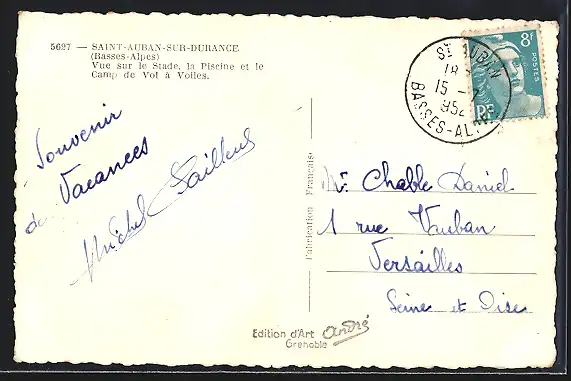 5627 — SAINT-AUBAN-SUR-DURANCE
(Basses-Alpes)
Vue sur le Stade, la Piscine et le
Camp de Vol à Voiles.
Souvenir
de Vacances
Michel
Fabrication Française
Mr. Chable Daniel
1 rue Vauban
Versailles
Seine et Oise
Edition d'Art André
Grenoble
ST AUBAN
18
15
952
BASSES-ALP
8f
POSTES
RF